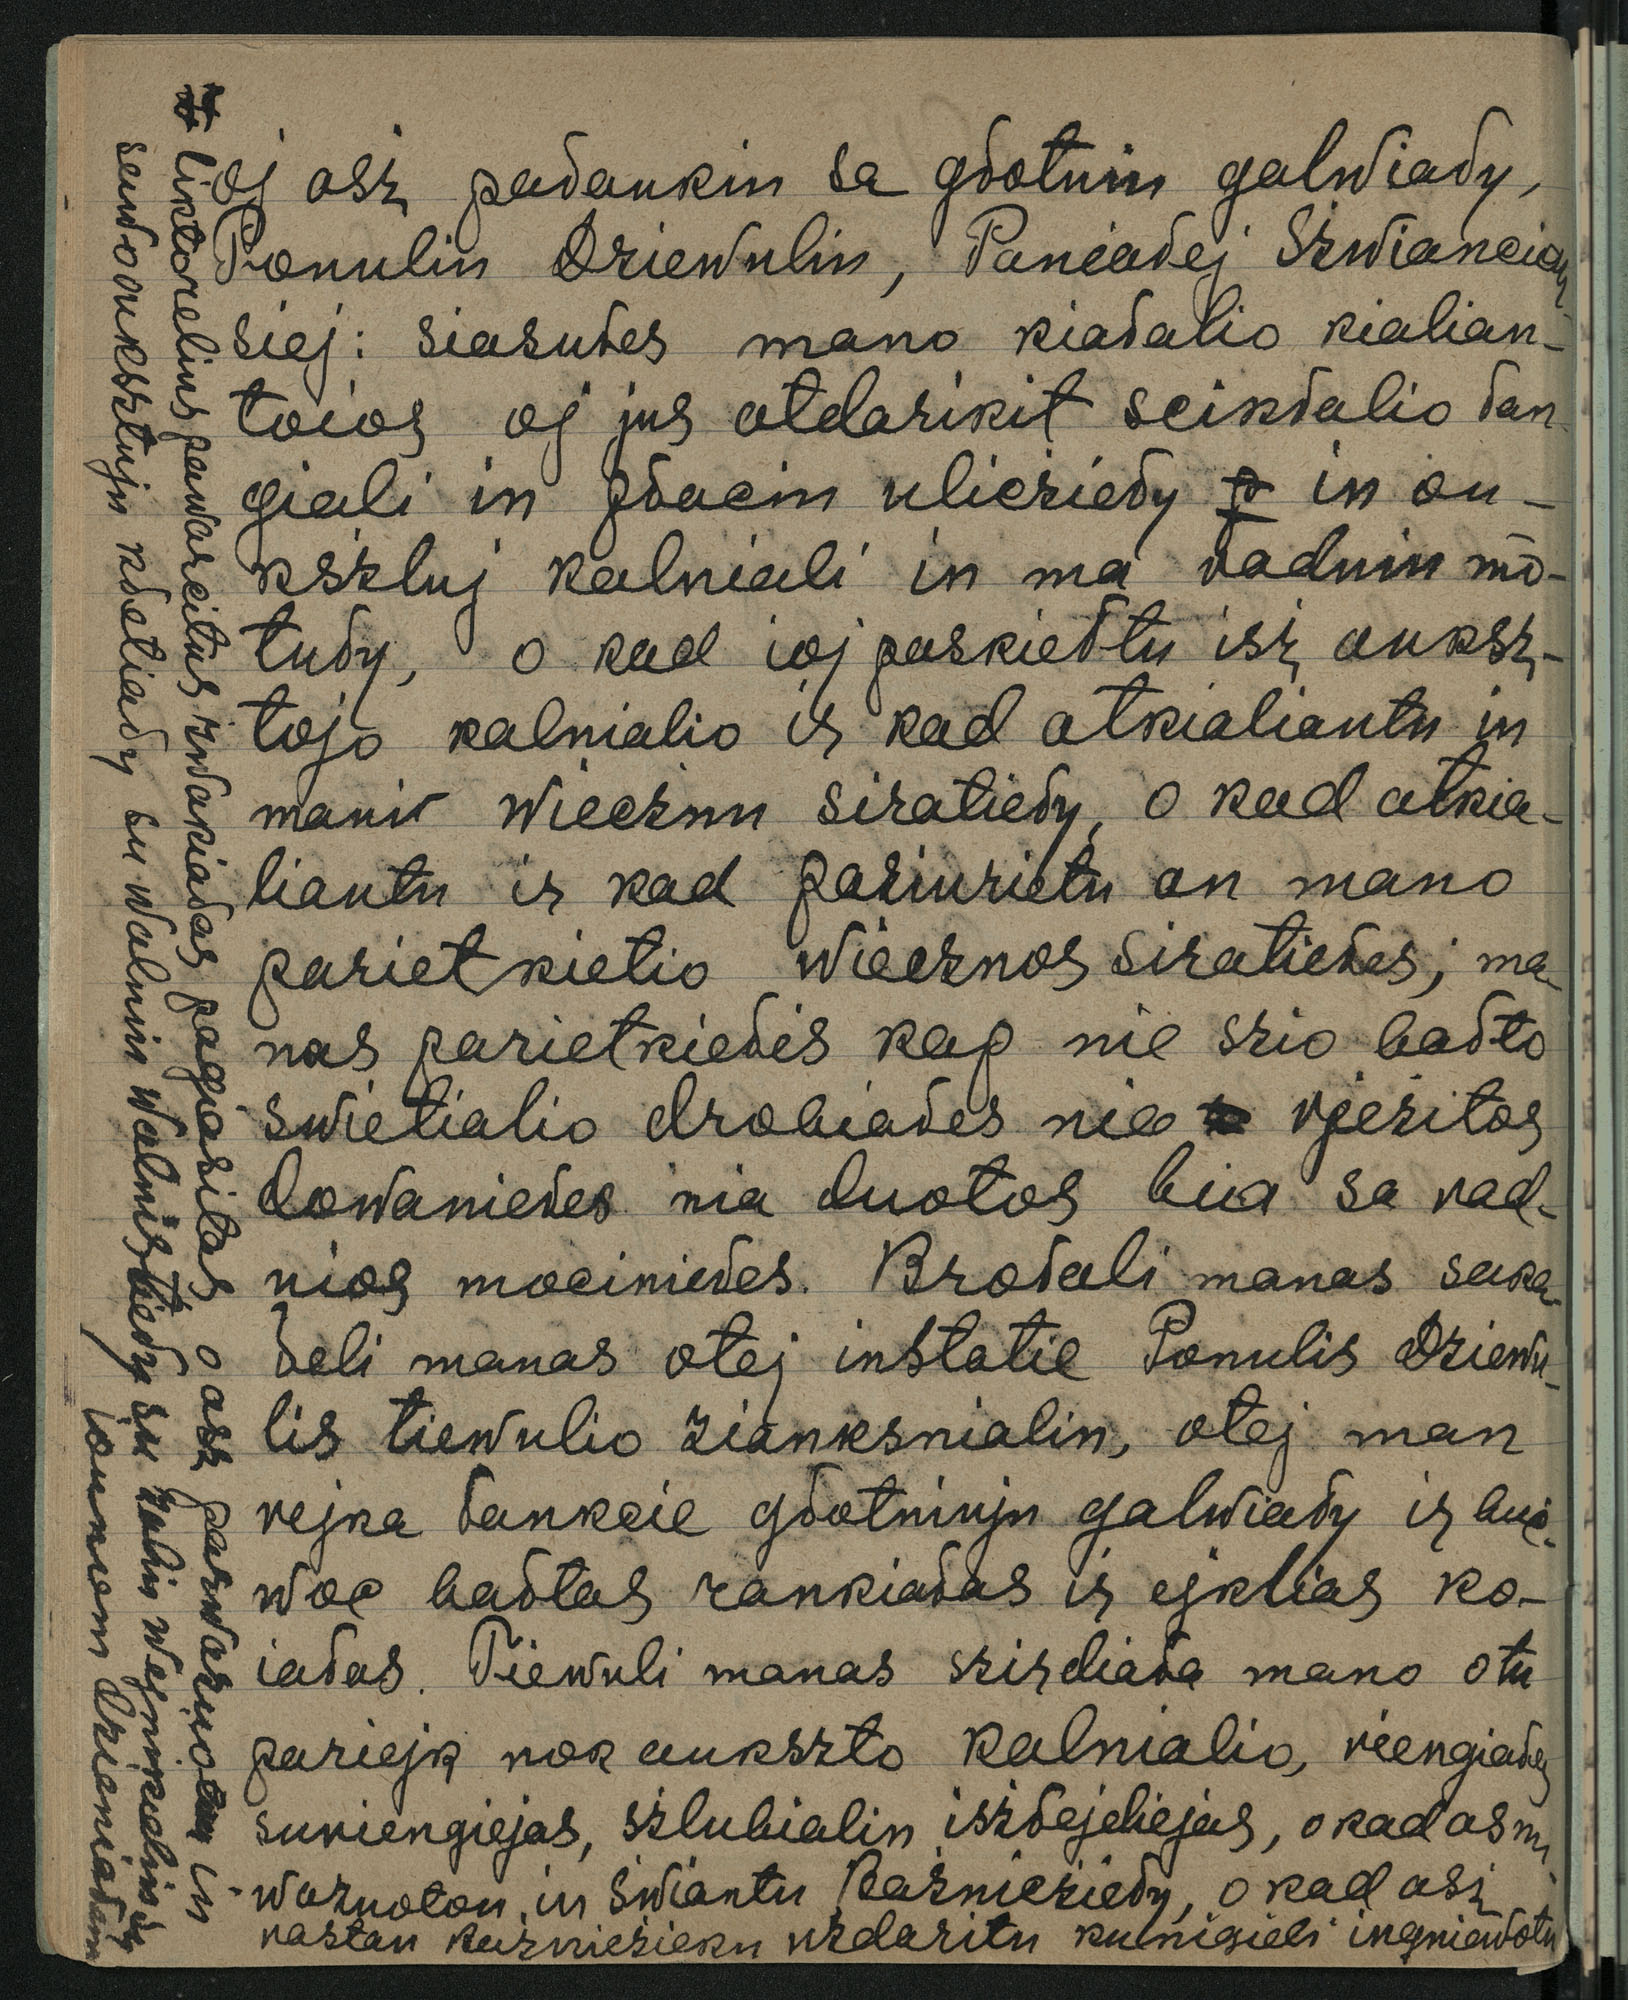 oj asz pałankin sa głotnin galwiały,
Ponulin Dziewulin, Panciałej Szwianciau-
siej: siasułes mano kiałalio kialian-
toios oj jus atdarikit scikłalio łan-
giali in płacin ulicziely in au-
kszluj kalniali in ma radnin mo-
tuły, o kad ioj paskiełtu isz auksz-
tojo kalnialio ir kad atkialiantu in
mani wiecznu siratieły, o kad atkia-
liantu ir kad paziurietu an mano
parietkielio wiecznos siratiełes; ma-
nas parietkiełis kap nie szio bałto
swietialio drobiałes nie rjezitos
dowaniełes nia duotos bua sa rad-
nios mociniełes. Brołali manas saka-
łeli manas otej instatie Ponulis Dziewu-
lis tiewulio zianksnialin, otej man
rejka łankcie głotniuju galwiały ir bucia-
woc bałtas rankiałas ir ejklias ko-
iałas. Tiewuli manas szirdiała mano otu
pariejk nog aukszto kalnialio, riengiałes
suriengiejas, szlubialin iszłejdiejas, o kad asz nu-
waznoton in świantu Bażnicziely, o kad asz
rastau bażnicziełu uzdaritu kunigieli ingniawotu
# liktorelius pawarcitus żwakiałas pagiasitas o asz parwaznoiau in
senwo aukksztuju kłetiały su walnin walnistieły su zalin wejnikielin sz
iaunom dzianiałom